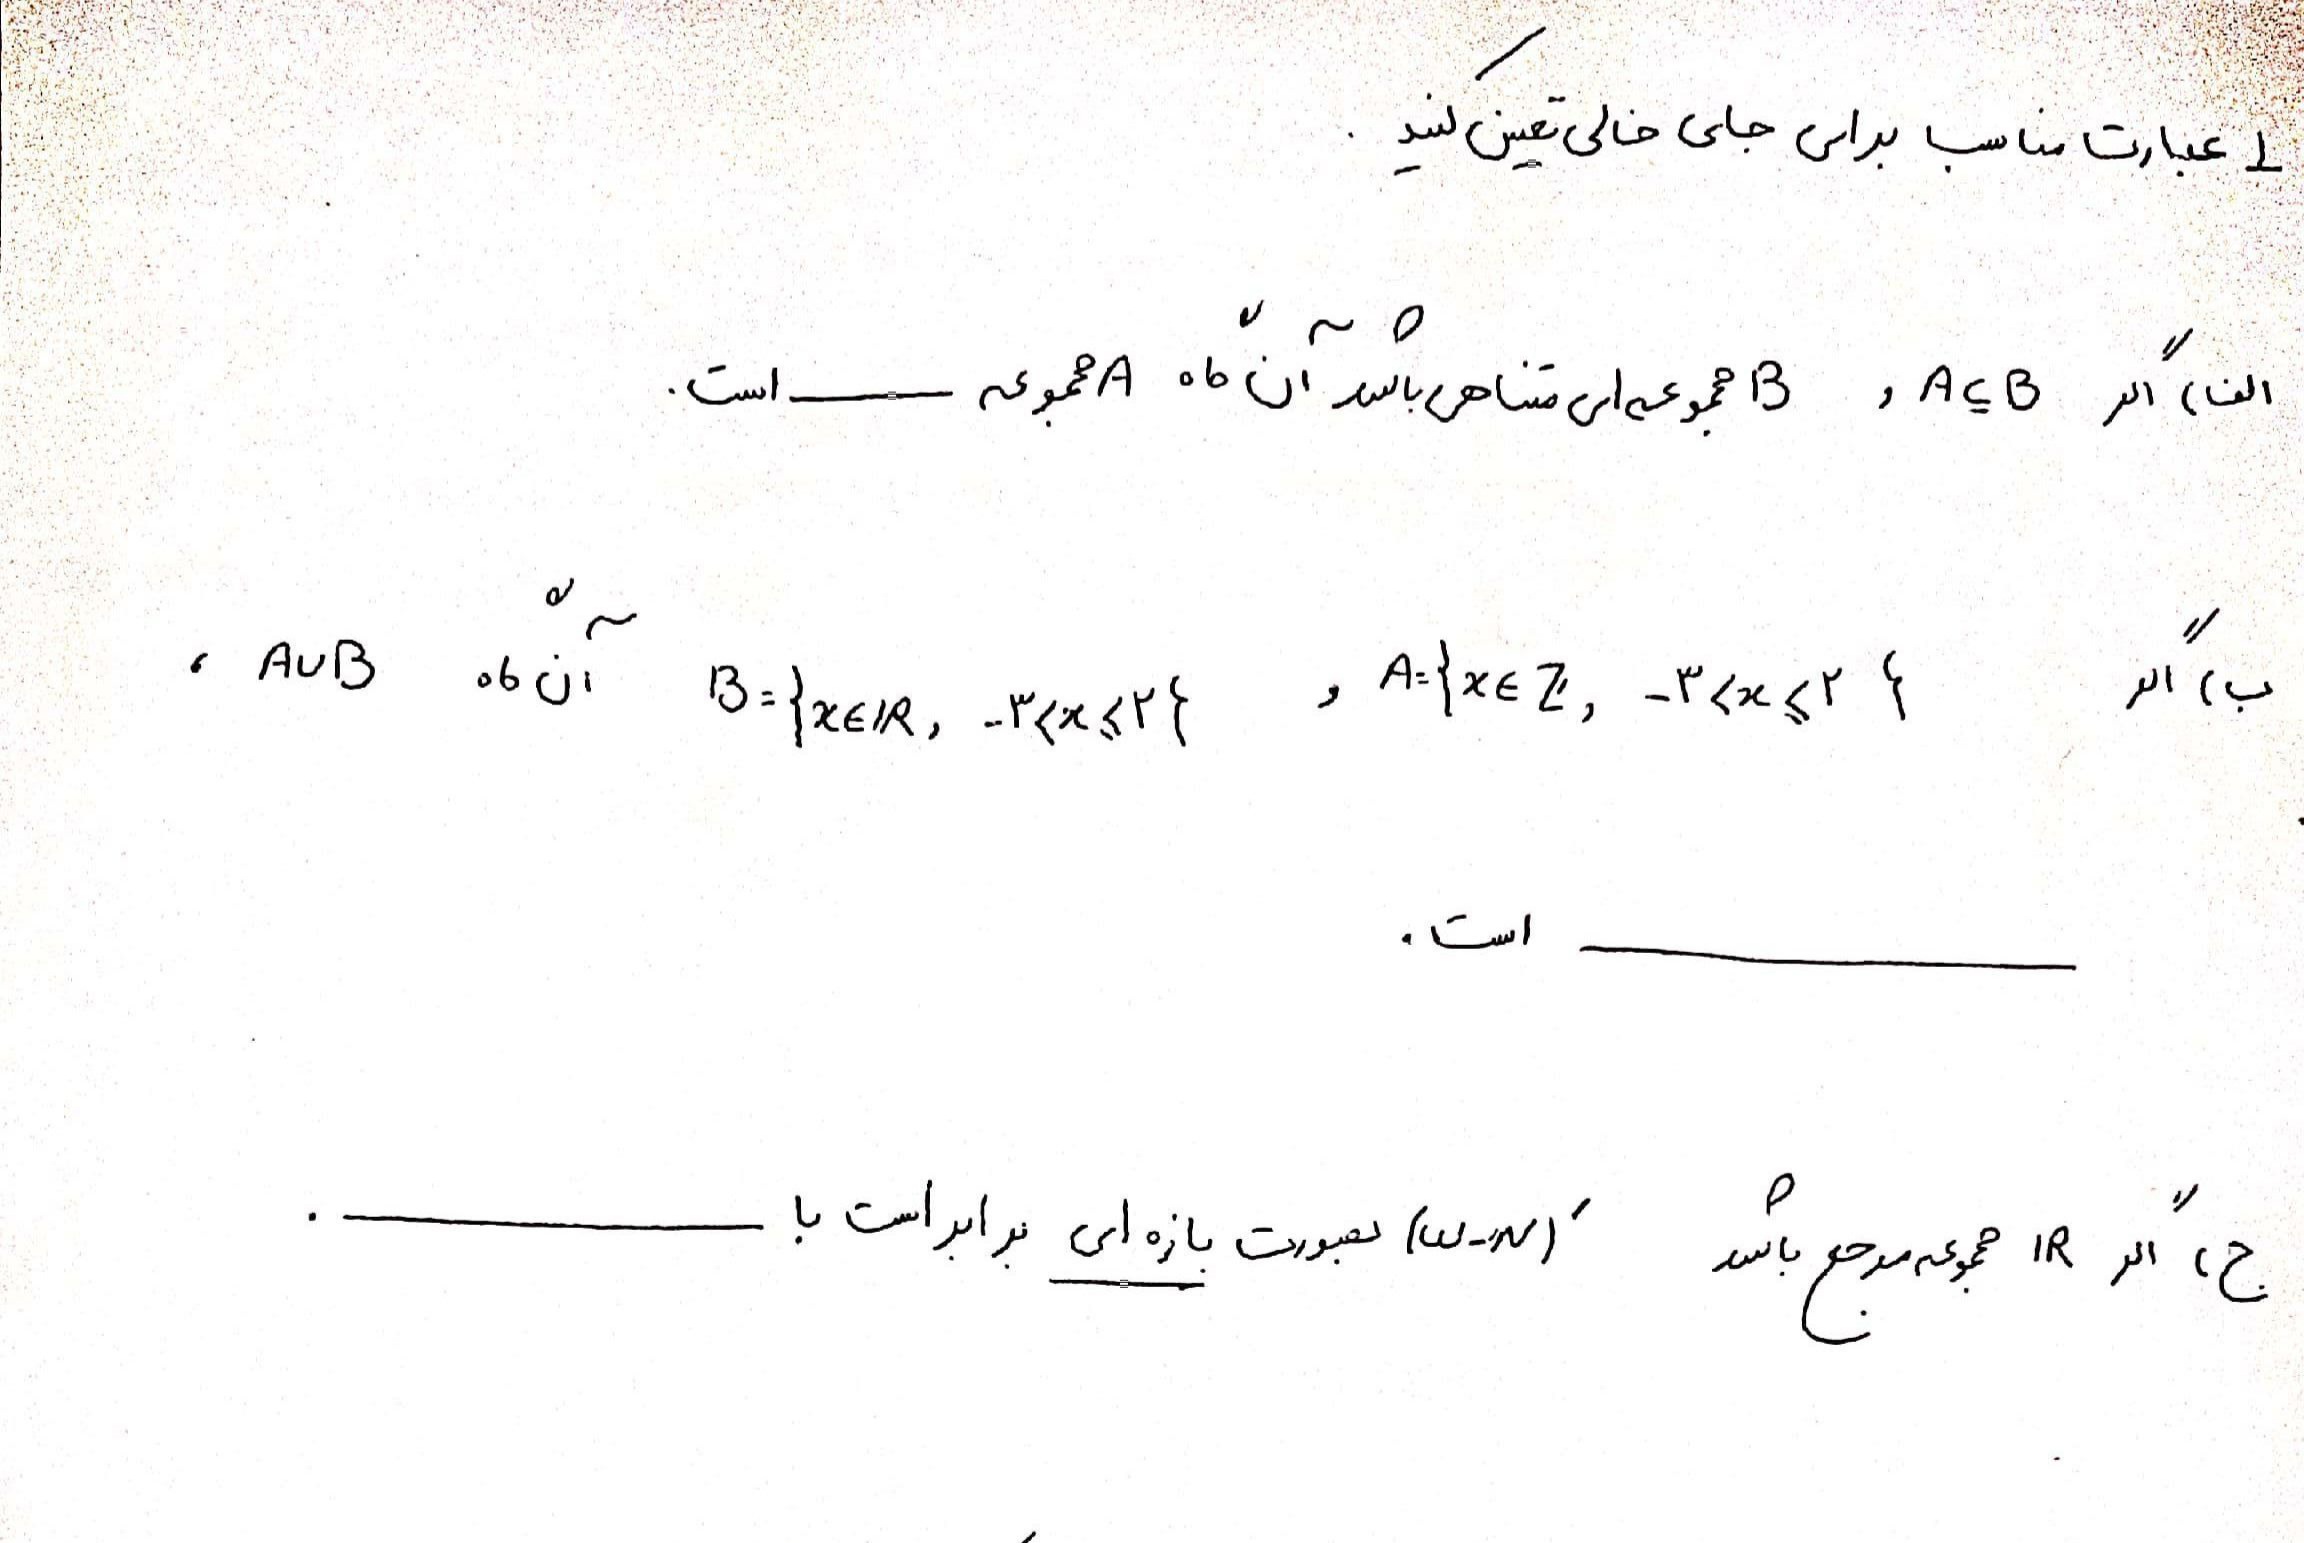 1_ عبارت مناسب برای جای خالی تعیین کنید .
الف) اگر A⊆B و B مجموعه ای متناهی باشد آن گاه A مجموعه ــــــــ است.
ب) اگر A={x∈Z, -۳<x≤۲} و B={x∈IR, -۳<x≤۲} آن گاه A∪B ،
ــــــــــــــــ است .
ج) اگر IR مجموعه مرجع باشد (W-N)′ بصورت بازه ای برابر است با ــــــــــــــــ .